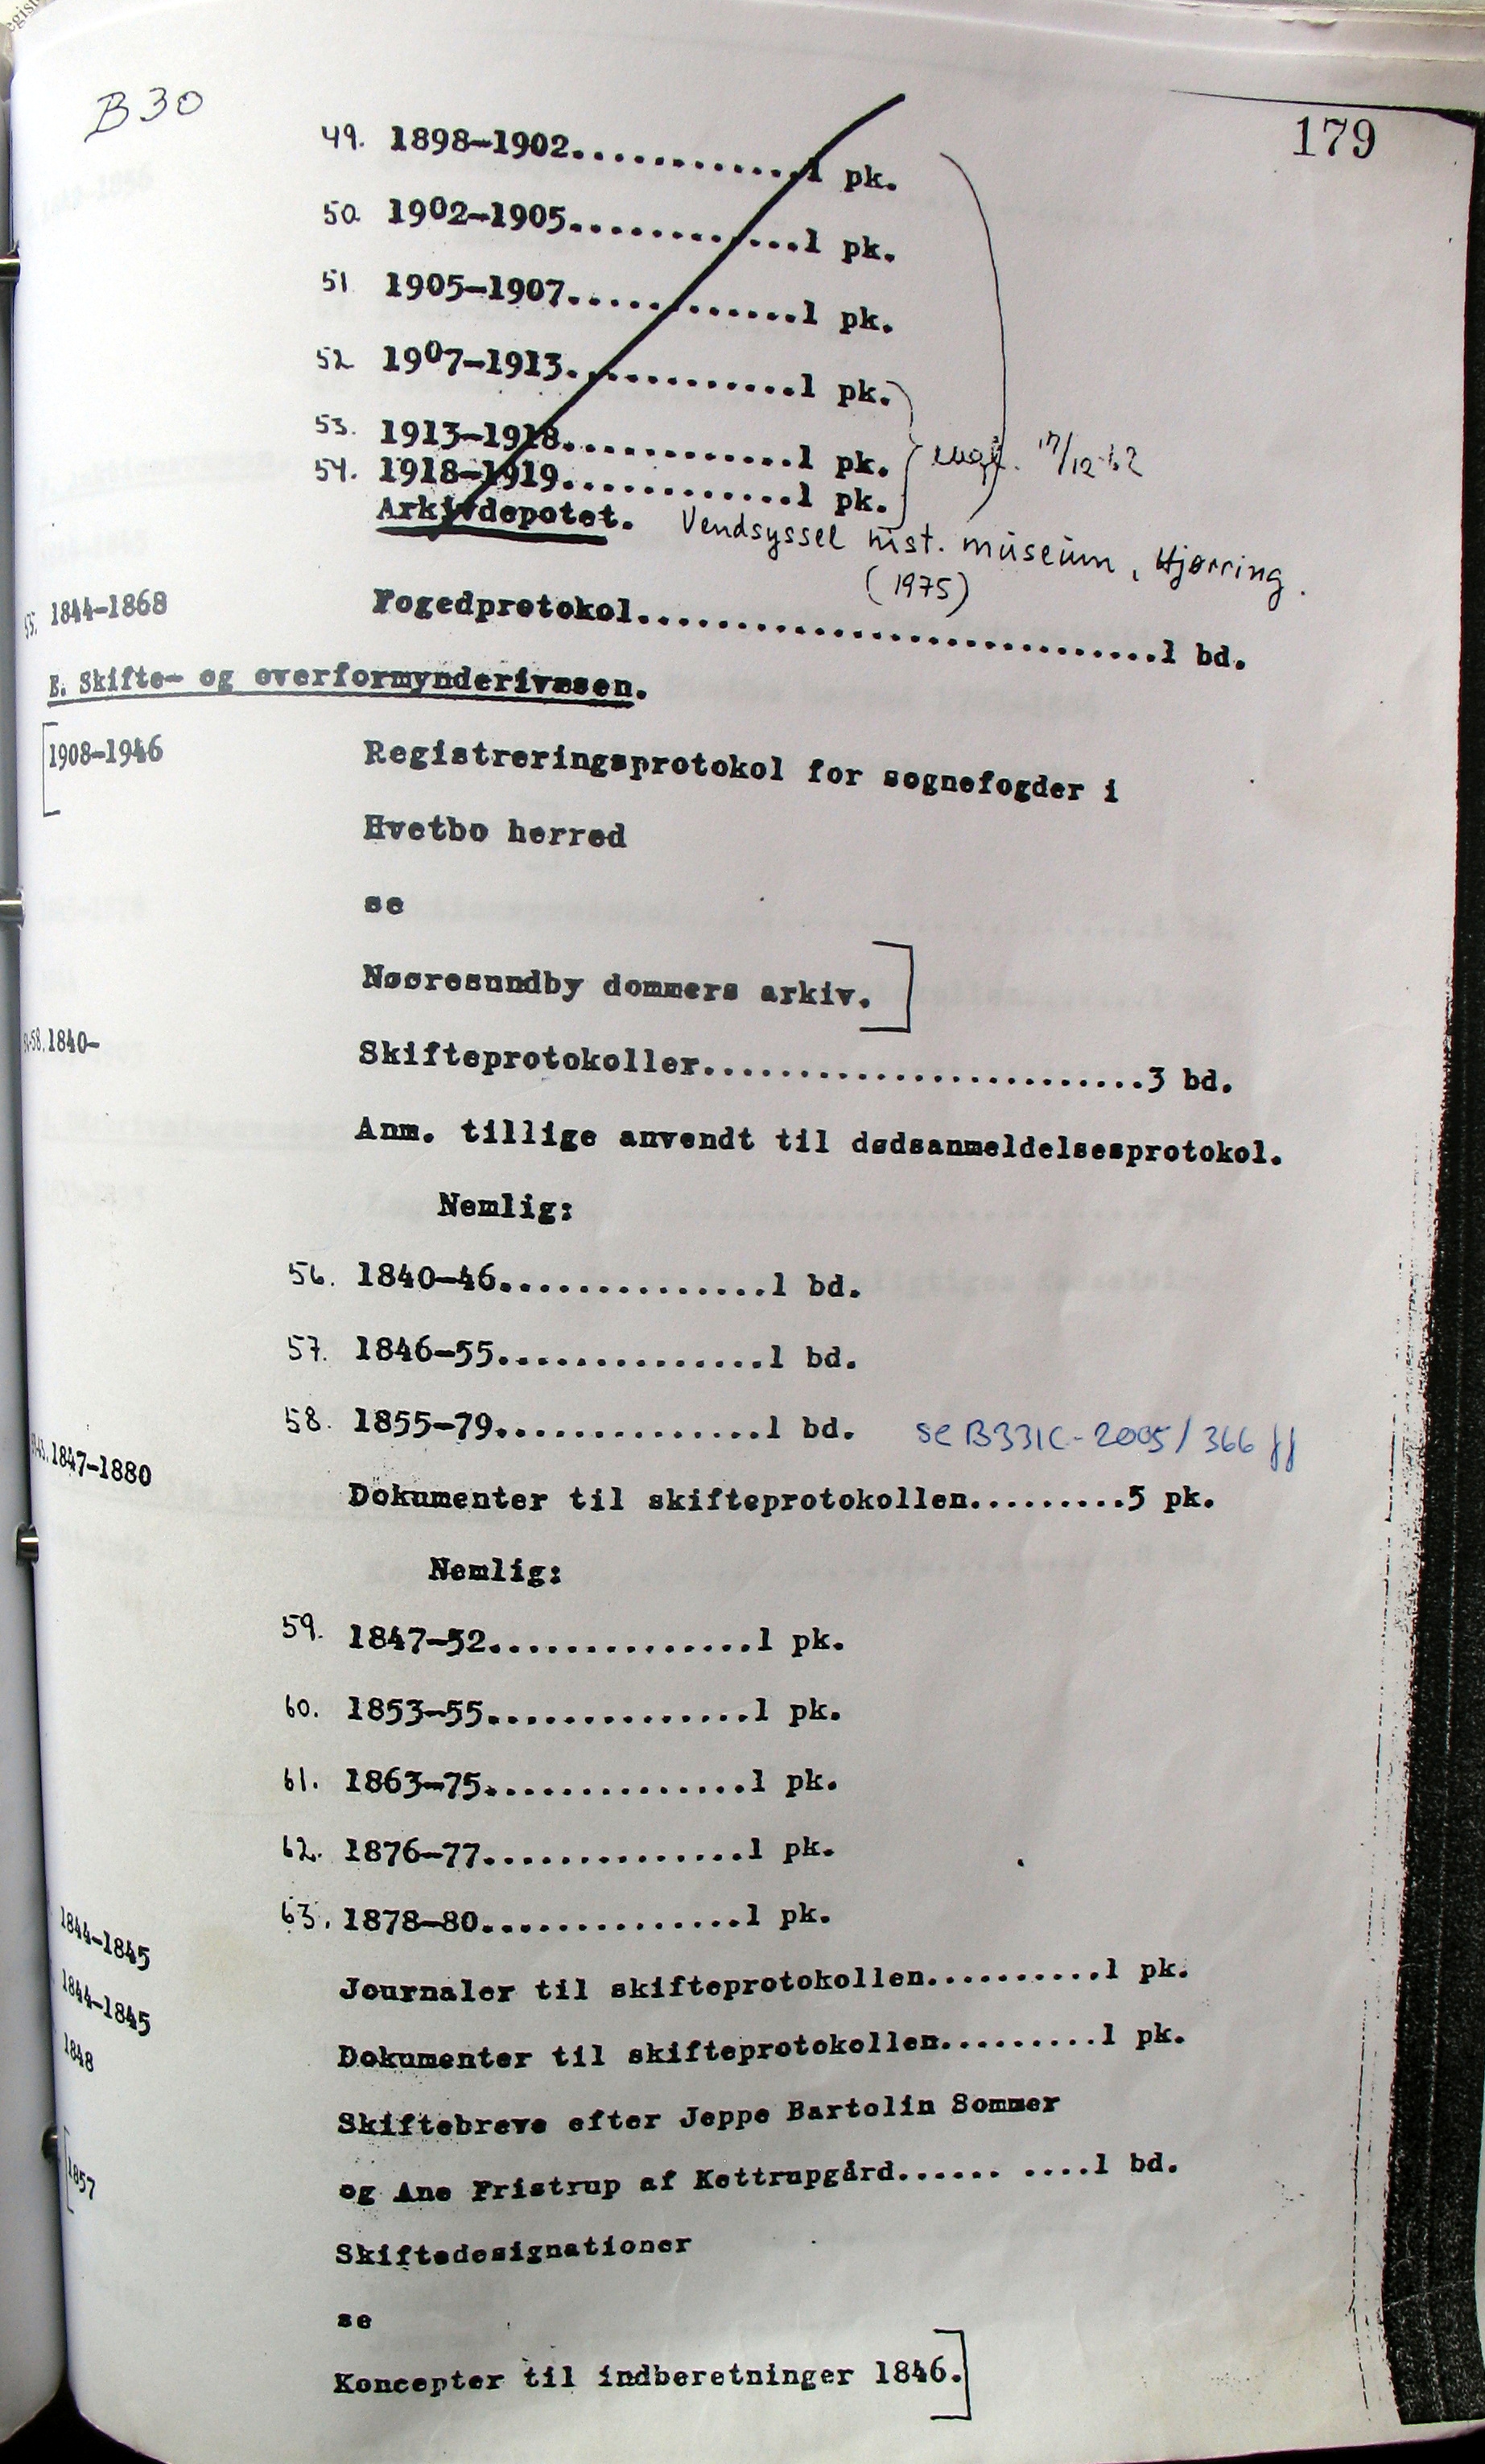 B 30
179
49. 1898-1902.............1 pk.
50 1902-1905............1 pk.
51 1905-1907............1 pk.
52 1907-1913............1 pk.
53. 1913-1918.............1 pk.
17/12-62
54. 1918-1919.............1 pk.
Arkivdepotet. Vendsyssel hist. museum, Hjørring.
(1975)
55. 1844-1868 Fogedprotokol............................1 bd.
E. Skifte- og overformynderivæsen.
[1908-1946 Registreringsprotokol for sognefogder i
Hvetbo herred
se
Nøøresundby dommers arkiv.]
58. 1840- Skifteprotokoller........................3 bd.
Anm. tillige anvendt til dødsanmeldelsesprotokol.
Nemlig:
56. 1840-46..............1 bd.
57. 1846-55..............1 bd.
58. 1855-79..............1 bd. se B331C-2005/366 ff
1847-1880 Dokumenter til skifteprotokollen.........5 pk.
Nemlig:
59. 1847-52..............1 pk.
60. 1853-55..............1 pk.
61. 1863-75..............1 pk.
62. 1876-77..............1 pk.
63. 1878-80..............1 pk.
1844-1845 Journaler til skifteprotokollen..........1 pk.
1844-1845 Dokumenter til skifteprotokollen.........1 pk.
1848 Skiftebreve efter Jeppe Bartolin Sommer
og Ane Fristrup af Kettrupgård...... ....1 bd.
[1857 Skiftedesignationer
se
Koncepter til indberetninger 1846.]